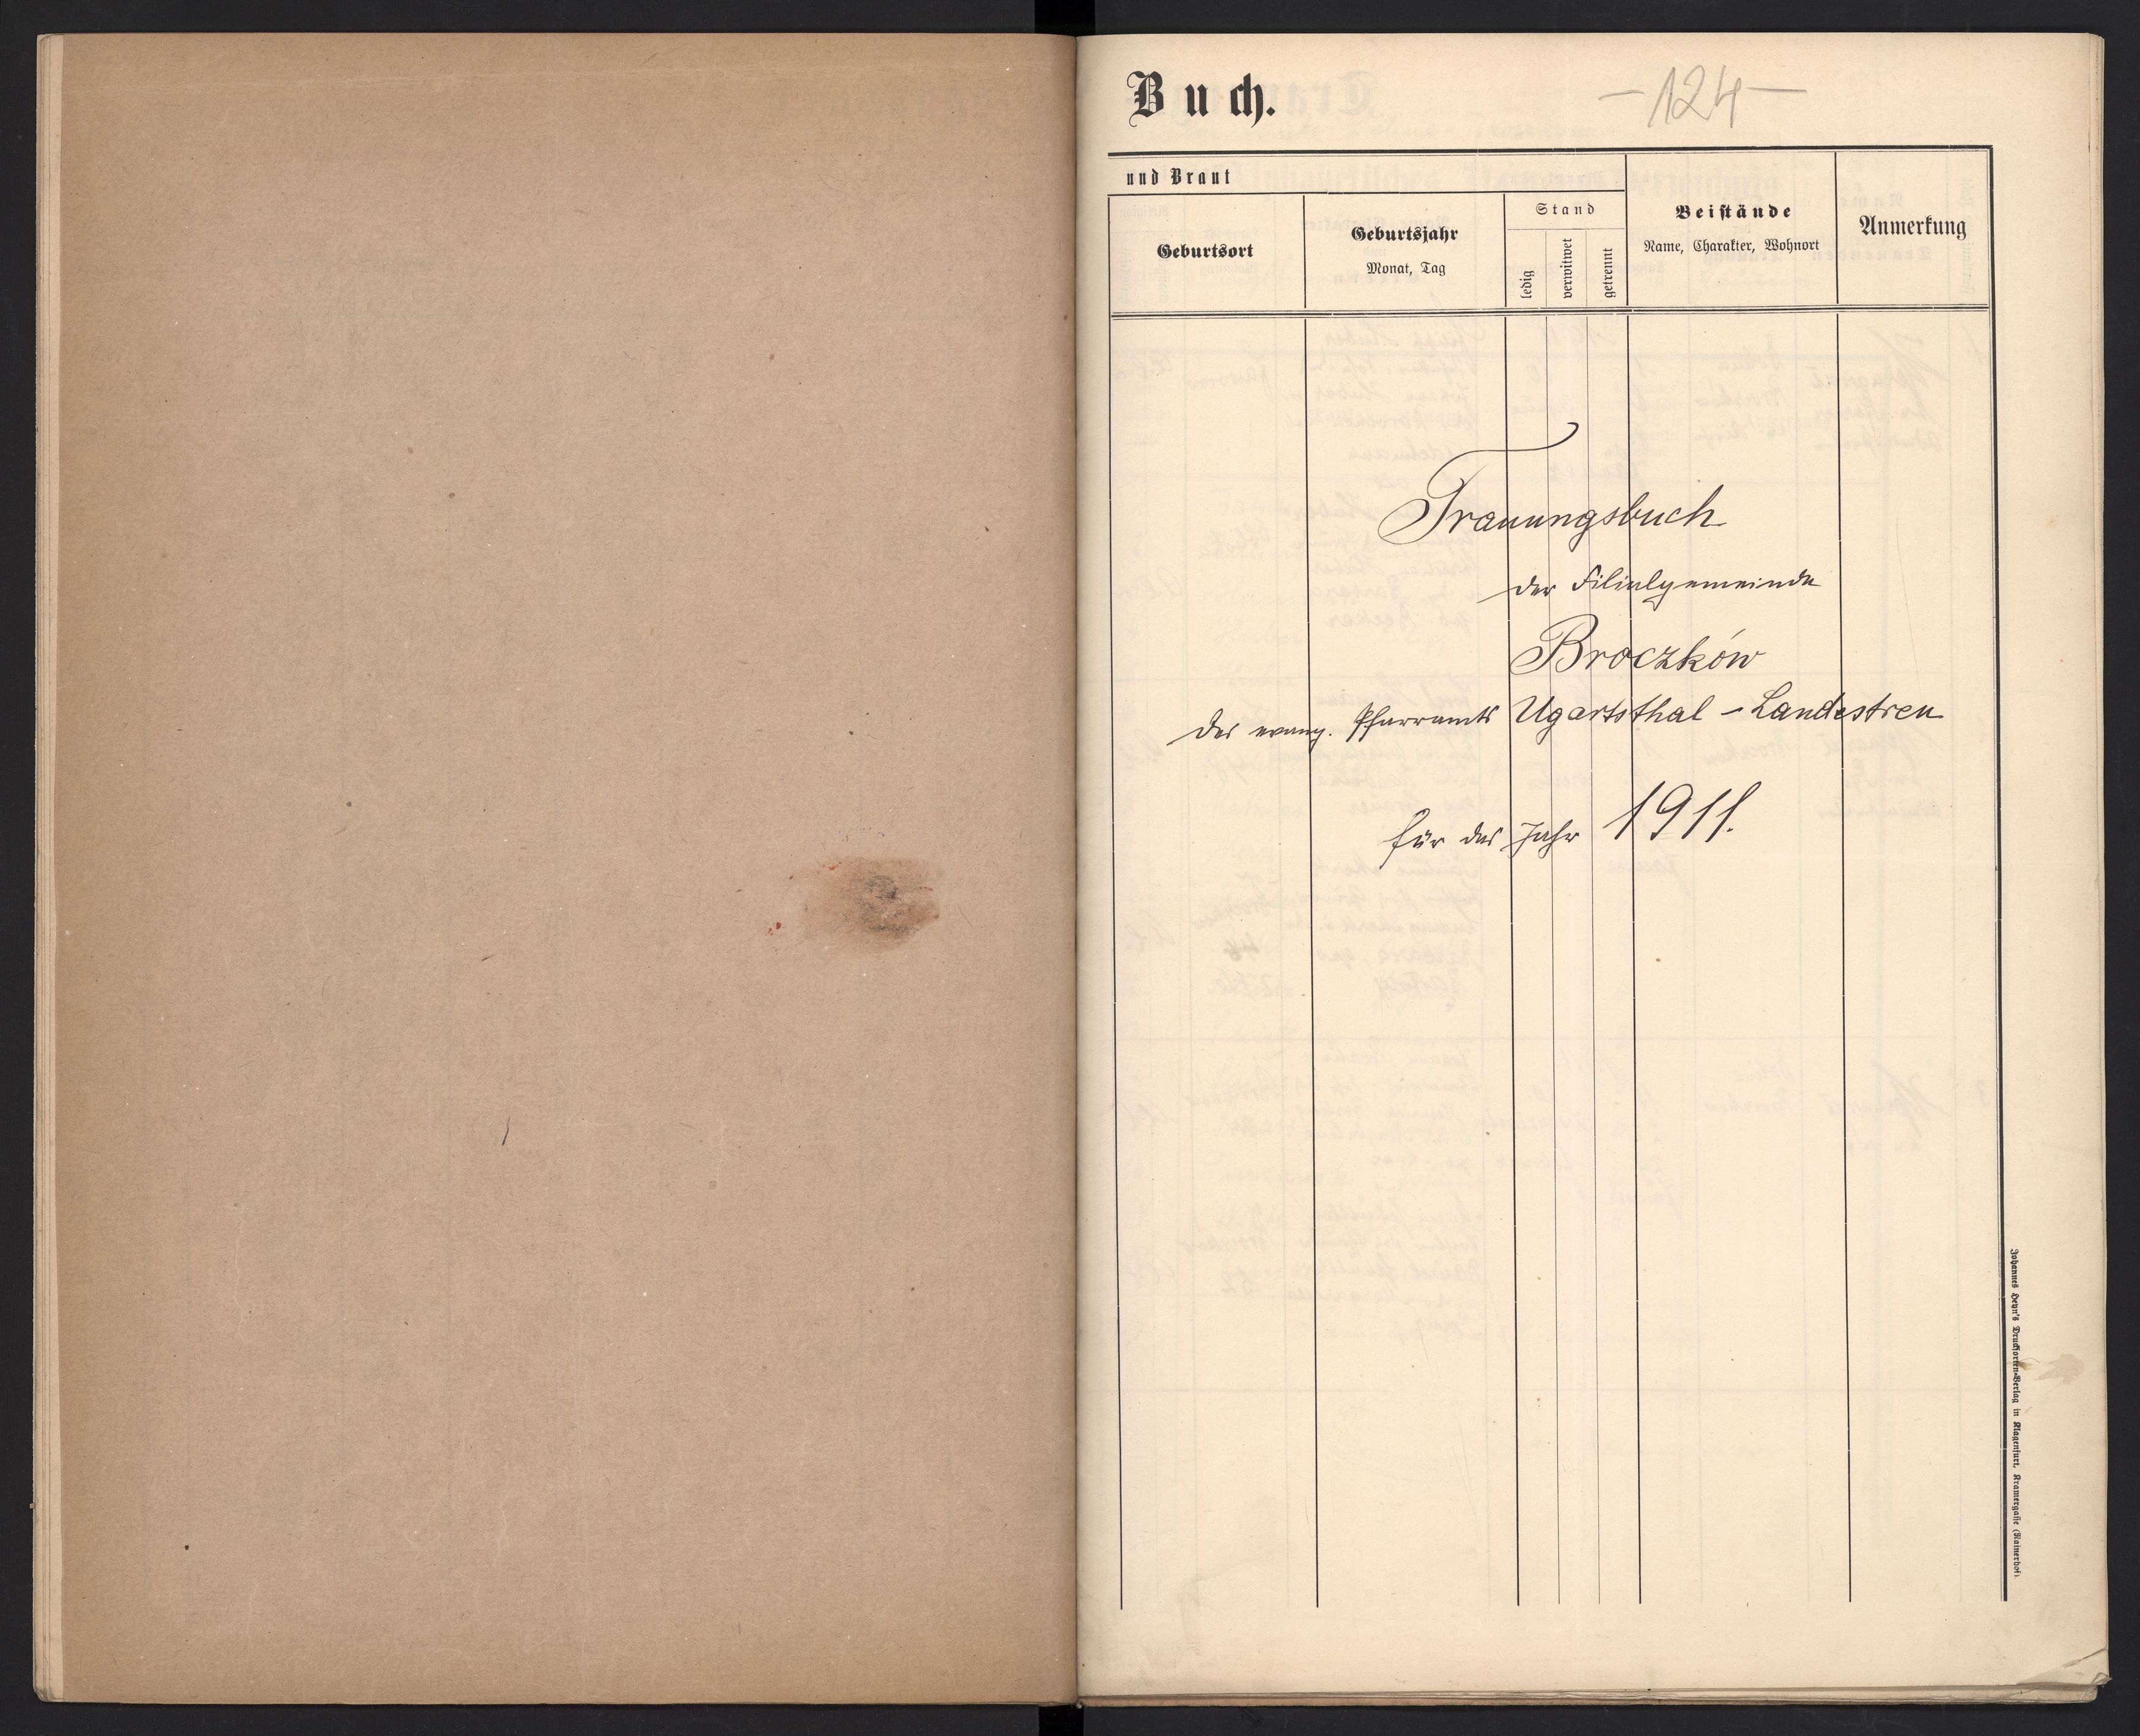 Buch.
-124-
und Braut
Geburtsort
Geburtsjahr
Monat, Tag
Stand
ledig
verwitwet
getrennt
Beistände
Name, Charakter, Wohnort
Anmerkung
Trauungsbuch
der Filialgemeinde
Broczków
des evang. Pfarramts Ugartsthal - Landestreu
für das Jahr 1911.
Johannes Heyn's Drucksorten-Verlag in Klagenfurt, Kramergasse (Rainerhof).